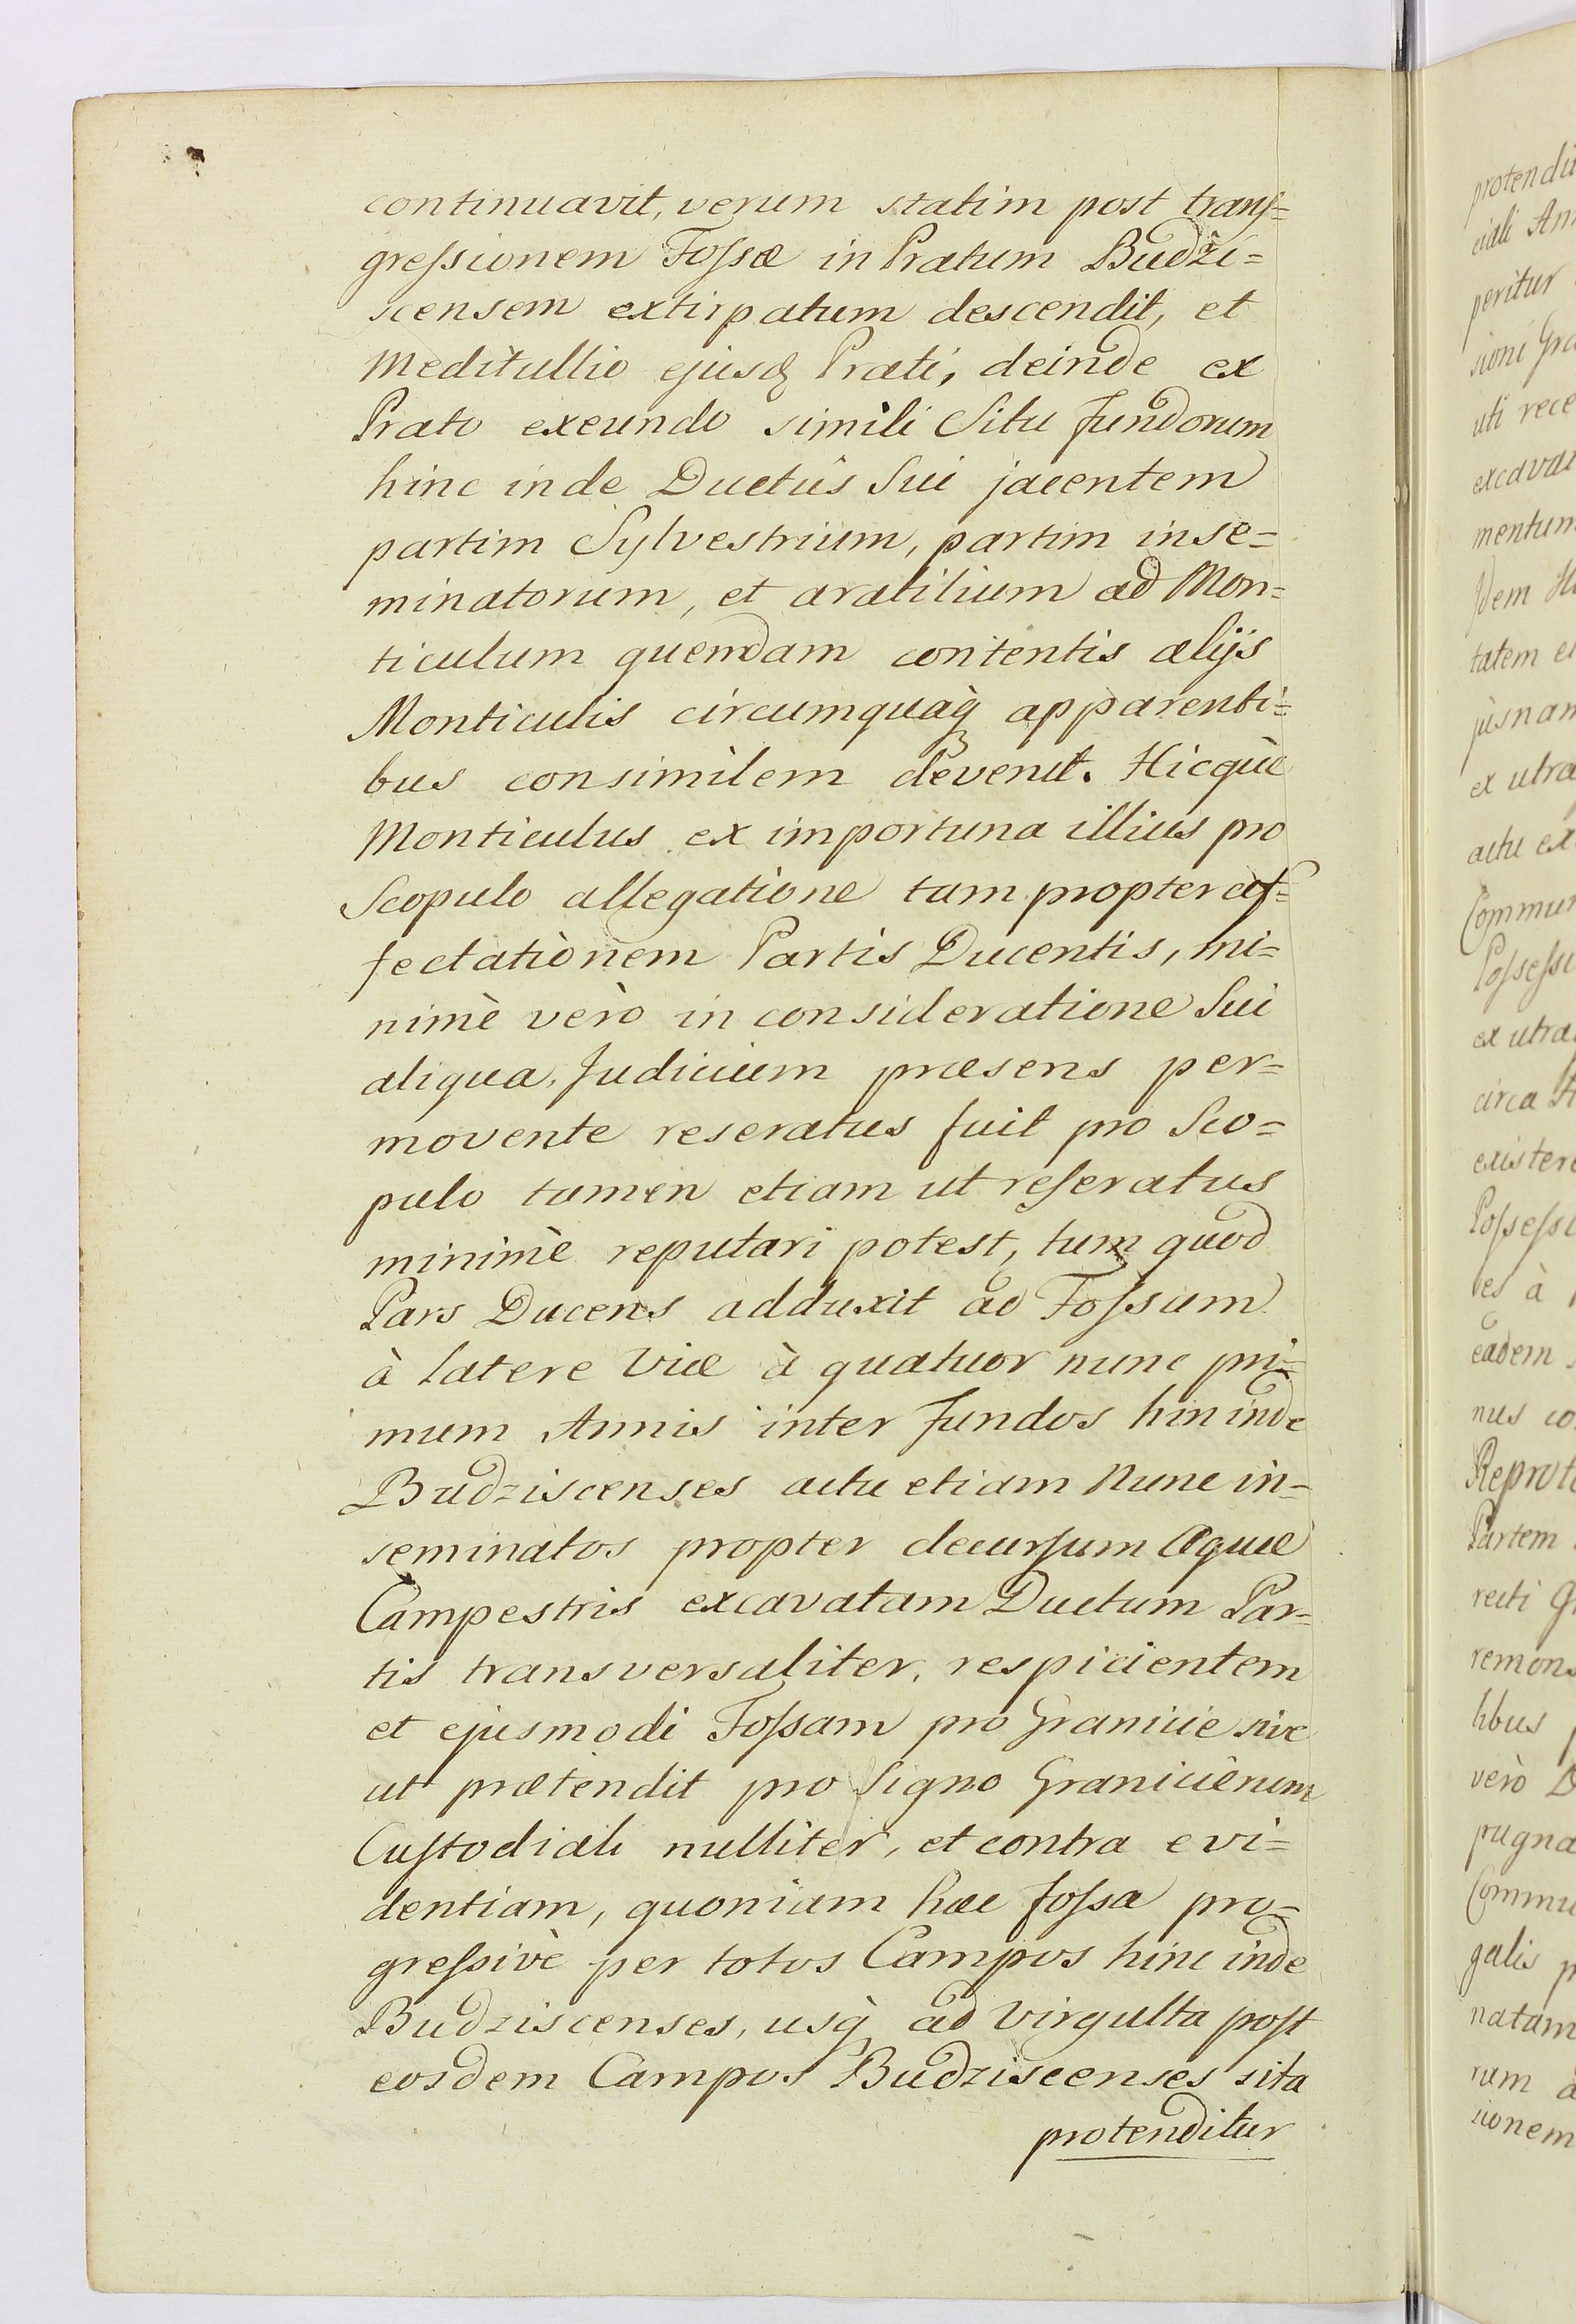 continuavit, verum statim post trans=
gressionem Fossæ in Pratum Budzi=
scensem extirpatum descendit, et
Meditullio ejusq Prati, deinde ex
Prato exeundo simili Situ fundorum
hinc inde Ductûs Sui jacentem
partim Sylvestrium, partim inse=
minatorum, et aratilium ad Mon=
ticulum quendam contentis alijs
Monticulis circumquaq̀ apparenti=
bus consimilem devenit. Hicquè
Monticulus ex importuna illius pro
Scopulo allegatione tam propter af=
fectationem Partis Ducentis, mi=
nimè verò in consideratione Sui
aliqua, Judicium præsens per=
movente reseratus fuit pro Sco=
pulo tamen etiam ut reseratus
minimè reputari potest, tum quod
Pars Ducens adduxit ad Fossam
à latere Viæ à quatuor nunc pri=
mum Annis inter fundos hin inde
Budziscenses actu etiam Nunc in=
seminatos propter decursum Aquæ
Campestris excavatam Ductum Par=
tis transversaliter, respicientem
et ejusmodi Fossam pro Graniciê sive
ut prætendit pro Signo Granicierum
Custodiali nulliter, et contra evi=
dentiam, quoniam hæc fossa pro=
gressivè per totos Campos hinc inde
Budziscenses, usq̀ ad Virgulta post
eosdem Campos Budziscenses sita
protenditur
mentum
tatem
ex utra
actu ex
ex utra
circa
Possessi
eadem
Partem
recti
remons
verò
pugna
natam